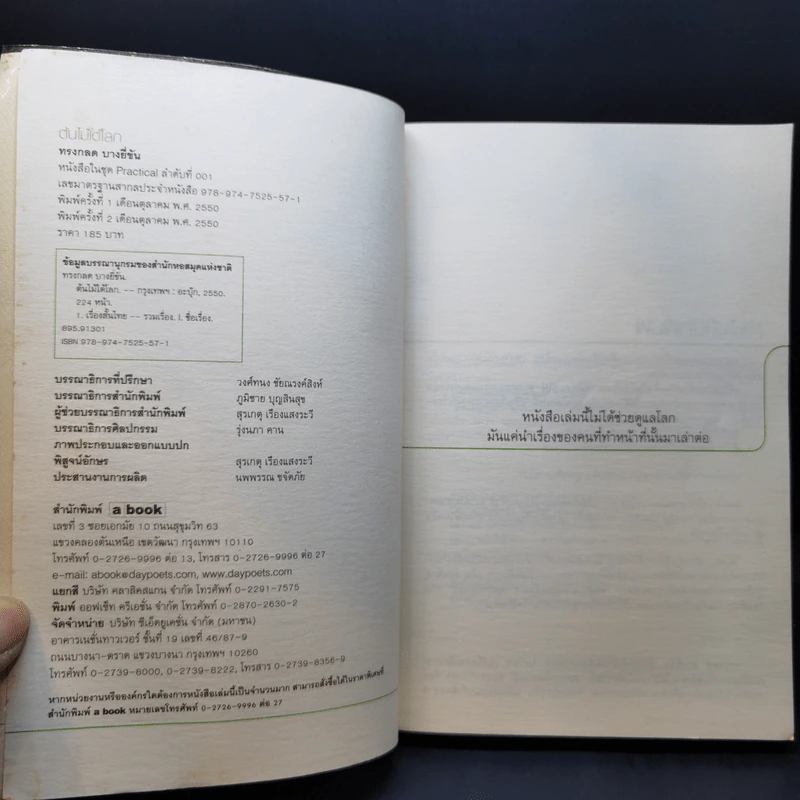 ต้นไม้ใต้โลก
ทรงกลด บางยี่ขัน
หนังสือในชุด Practical ลำดับที่ 001
เลขมาตรฐานสากลประจำหนังสือ 978-974-7525-57-1
พิมพ์ครั้งที่ 1 เดือนตุลาคม พ.ศ. 2550
พิมพ์ครั้งที่ 2 เดือนตุลาคม พ.ศ. 2550
ราคา 185 บาท
ข้อมูลบรรณานุกรมของสำนักหอสมุดแห่งชาติ
ทรงกลด บางยี่ขัน.
ต้นไม้ใต้โลก. -- กรุงเทพฯ : อะบุ๊ก, 2550.
224 หน้า.
1. เรื่องสั้นไทย -- รวมเรื่อง. I. ชื่อเรื่อง.
895.91301
ISBN 978-974-7525-57-1
บรรณาธิการที่ปรึกษา วงศ์ทนง ชัยณรงค์สิงห์
บรรณาธิการสำนักพิมพ์ ภูมิชาย บุญสินสุข
ผู้ช่วยบรรณาธิการสำนักพิมพ์ สุรเกตุ เรืองแสงระวี
บรรณาธิการศิลปกรรม รุ่งนภา คาน
ภาพประกอบและออกแบบปก
พิสูจน์อักษร สุรเกตุ เรืองแสงระวี
ประสานงานการผลิต นพพรรณ ขจัดภัย
สำนักพิมพ์ a book
เลขที่ 3 ซอยเอกมัย 10 ถนนสุขุมวิท 63
แขวงคลองตันเหนือ เขตวัฒนา กรุงเทพฯ 10110
โทรศัพท์ 0-2726-9996 ต่อ 13, โทรสาร 0-2726-9996 ต่อ 27
e-mail: abook@daypoets.com, www.daypoets.com
แยกสี บริษัท คลาสิคสแกน จำกัด โทรศัพท์ 0-2291-7575
พิมพ์ ออฟเซ็ท ครีเอชั่น จำกัด โทรศัพท์ 0-2870-2630-2
จัดจำหน่าย บริษัท ซีเอ็ดยูเคชั่น จำกัด (มหาชน)
อาคารเนชั่นทาวเวอร์ ชั้นที่ 19 เลขที่ 46/87-9
ถนนบางนา-ตราด แขวงบางนา กรุงเทพฯ 10260
โทรศัพท์ 0-2739-8000, 0-2739-8222, โทรสาร 0-2739-8356-9
หากหน่วยงานหรือองค์กรใดต้องการหนังสือเล่มนี้เป็นจำนวนมาก สามารถสั่งซื้อได้ในราคาพิเศษที่
สำนักพิมพ์ a book หมายเลขโทรศัพท์ 0-2726-9996 ต่อ 27
หนังสือเล่มนี้ไม่ได้ช่วยดูแลโลก
มันแค่นำเรื่องของคนที่ทำหน้าที่นั้นมาเล่าต่อ